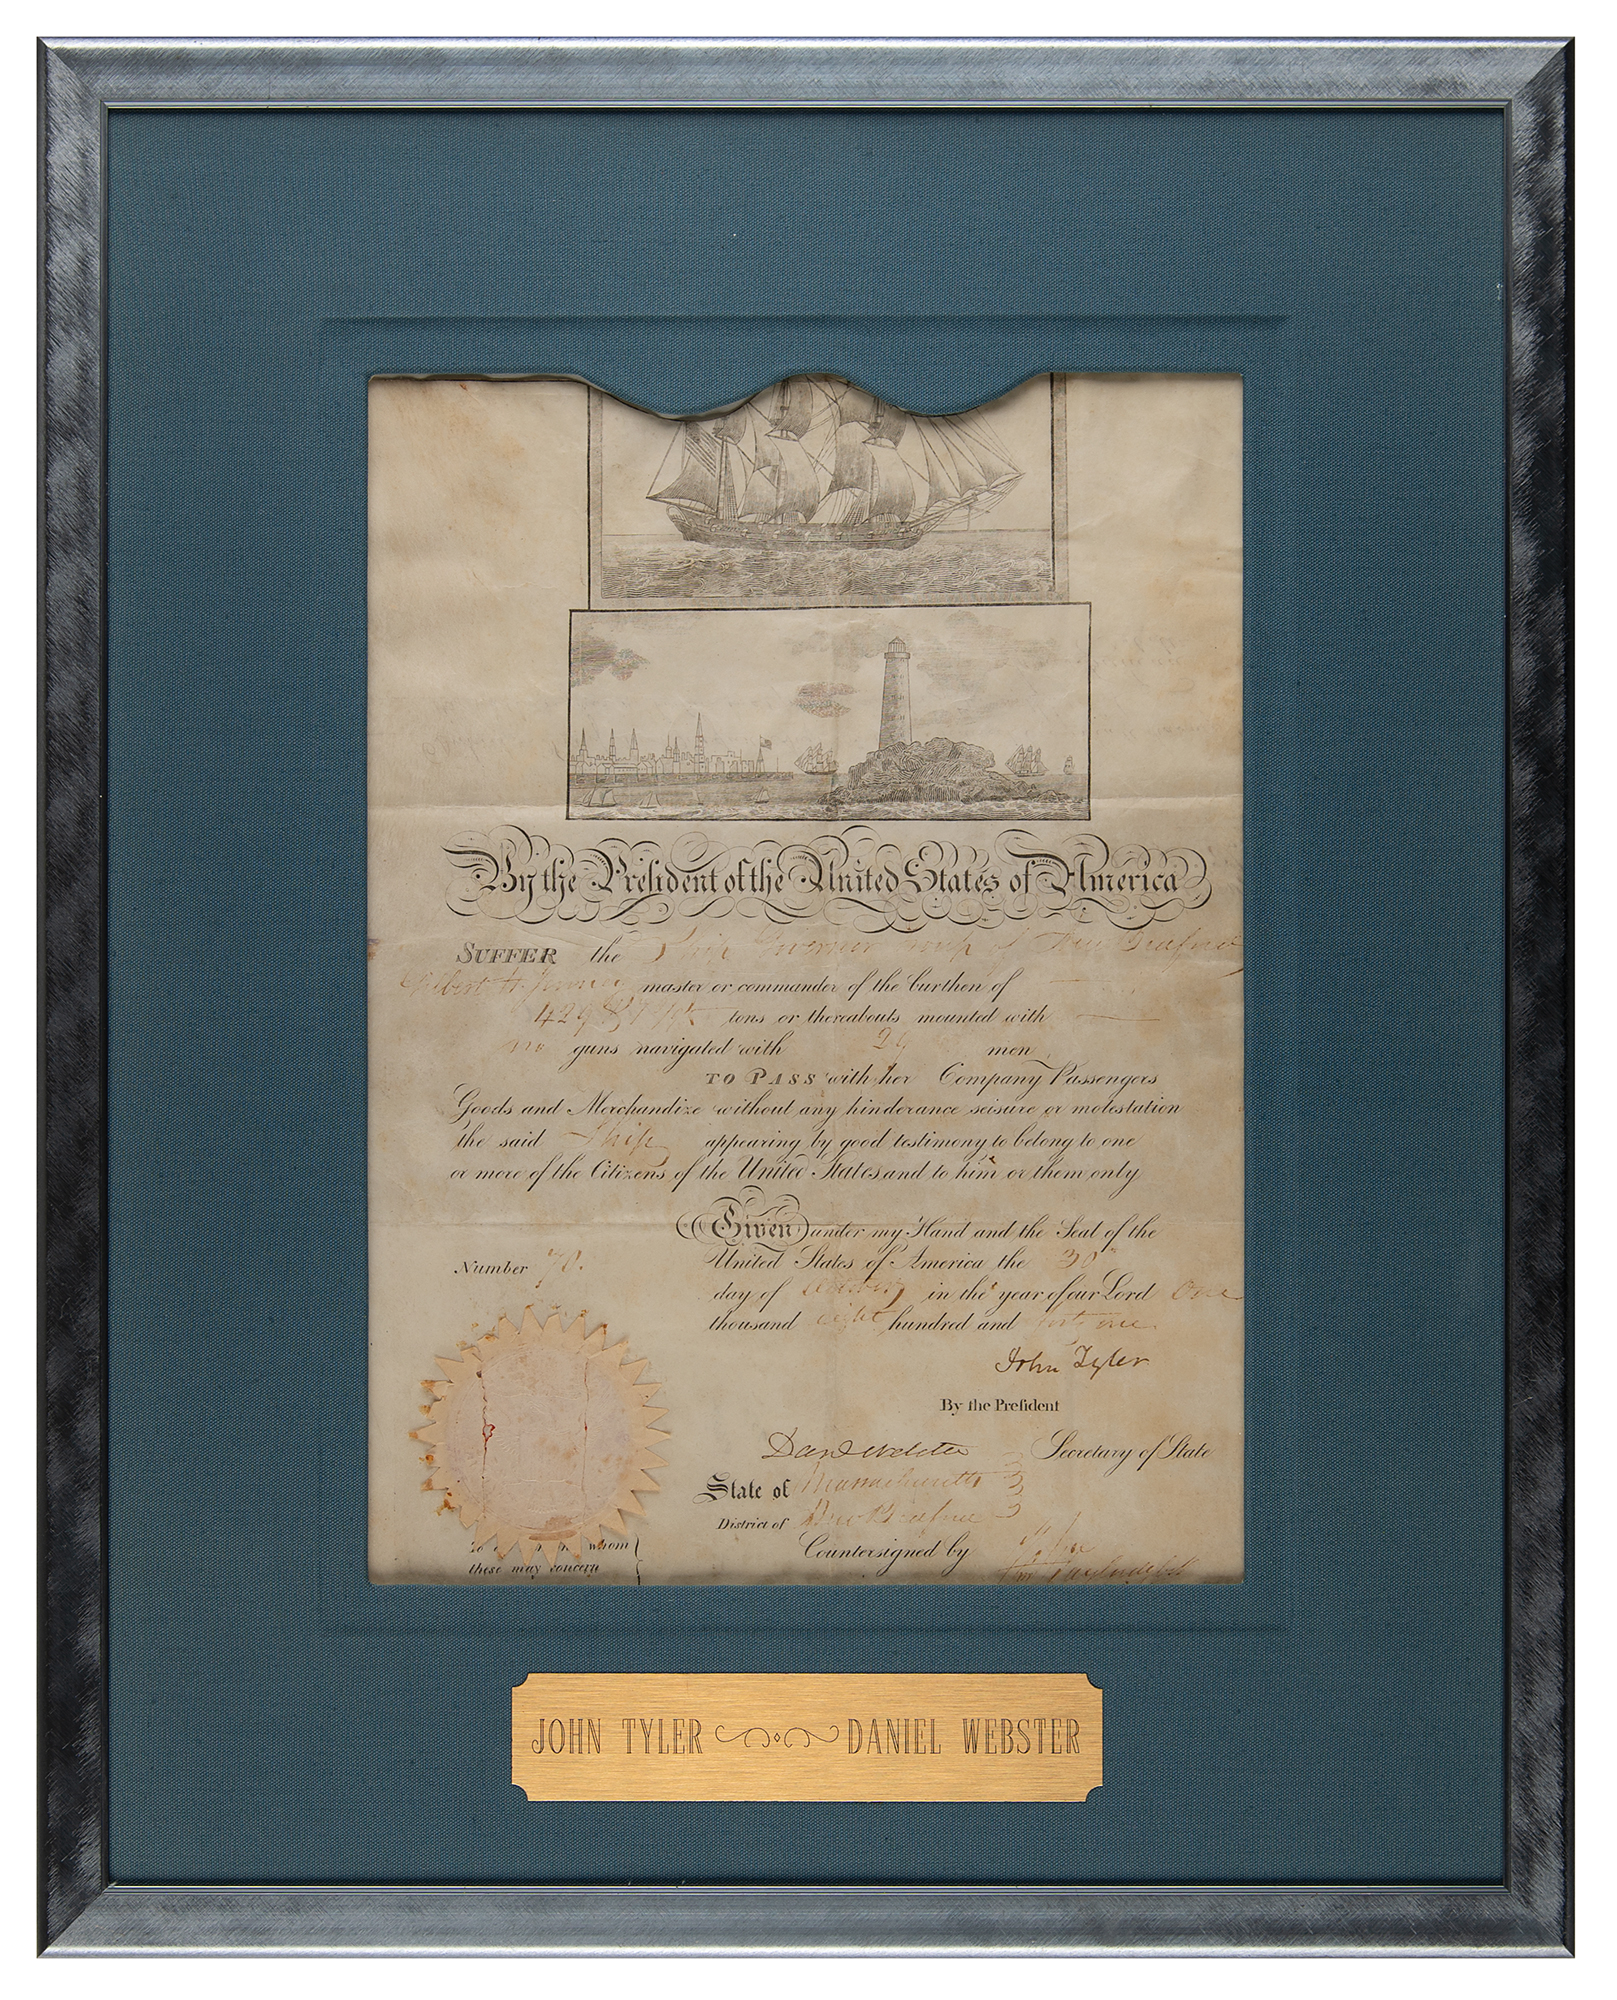 By the President of the United States of America
SUFFER the Ship Governor Troup of New Bedford
Gilbert H. master or commander of the burthen of
429 tons or thereabouts mounted with
no guns navigated with 29 men
TO PASS with her Company Passengers
Goods and Merchandize without any hinderance seisure or molestation
the said Ship appearing by good testimony to belong to one
or more of the Citizens of the United States and to him or them only
Given under my Hand and the Seal of the
Number 70. United States of America the 30th
day of October in the year of our Lord One
thousand eight hundred and forty one.
John Tyler
By the President
Danl Webster Secretary of State
State of Massachusetts
District of New Bedford
whom Countersigned by
these may concern
JOHN TYLER DANIEL WEBSTER